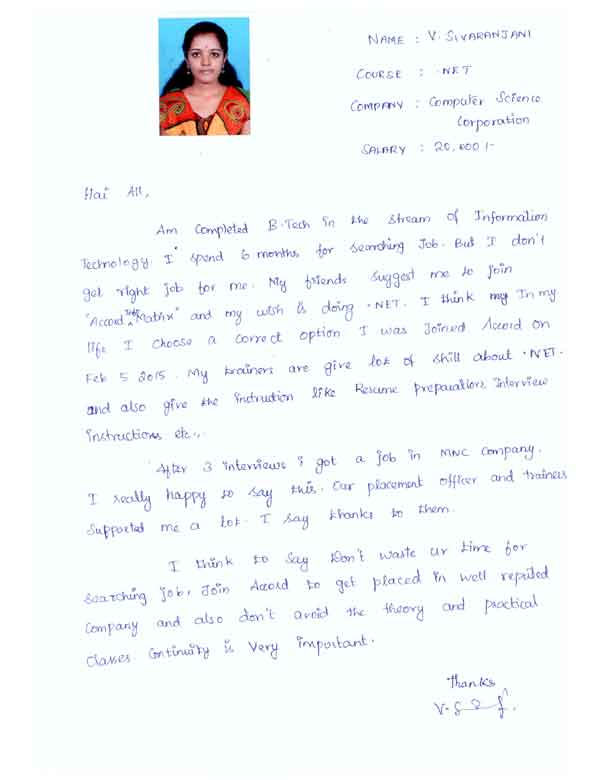 NAME : V. SIVARANJANI
COURSE : .NET
COMPANY : Computer Science
Corporation
SALARY : 20,000/-
Hai All,
Am Completed B.Tech in the stream of Information
Technology. I spend 6 months for searching Job. But I don't
get right job for me. My friends suggest me to join
"Accord Info Matrix" and my wish is doing .NET. I think my In my
life I choose a correct option I was Joined Accord on
Feb 5 2015. My trainers are give lot of skill about .NET.
and also give the instruction like Resume preparation, interview
instructions etc.,.
After 3 interviews i got a job in MNC Company.
I really happy to say this. Our placement officer and trainers
supported me a lot. I say thanks to them.
I think to say Don't waste ur time for
searching job, Join Accord to get placed in well reputed
Company and also don't avoid the theory and practical
classes. Continuity is Very important.
Thanks